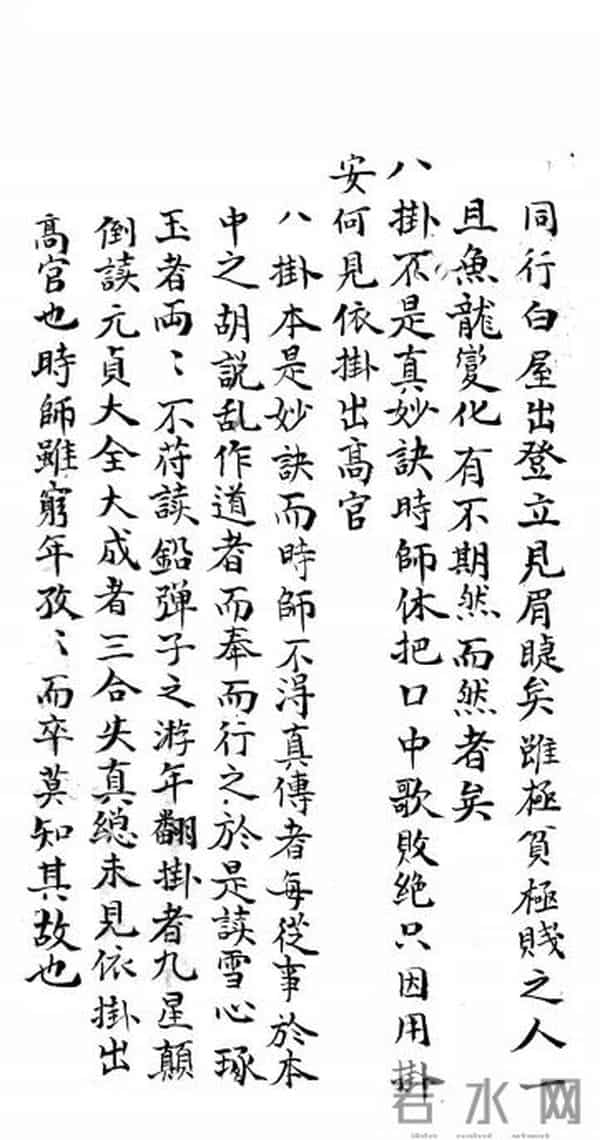 同行白屋出登立見眉睫矣雖極貧極賤之人一
且魚龍變化有不期然而然者矣
八掛不是真妙訣時師休把口中歌敗绝只因用掛
安何見依掛出高官
八掛本是妙訣而時師不淂真傳者每從事於本
中之胡説乱作道者而奉而行之於是读雪心琢
玉者両〻不苻读鉛弹子之游年翻掛者九星顛
倒读元貞大全大成者三合失真緫未見依掛出
高官也時師雖窮年孜〻而卒莫知其故也
若水网